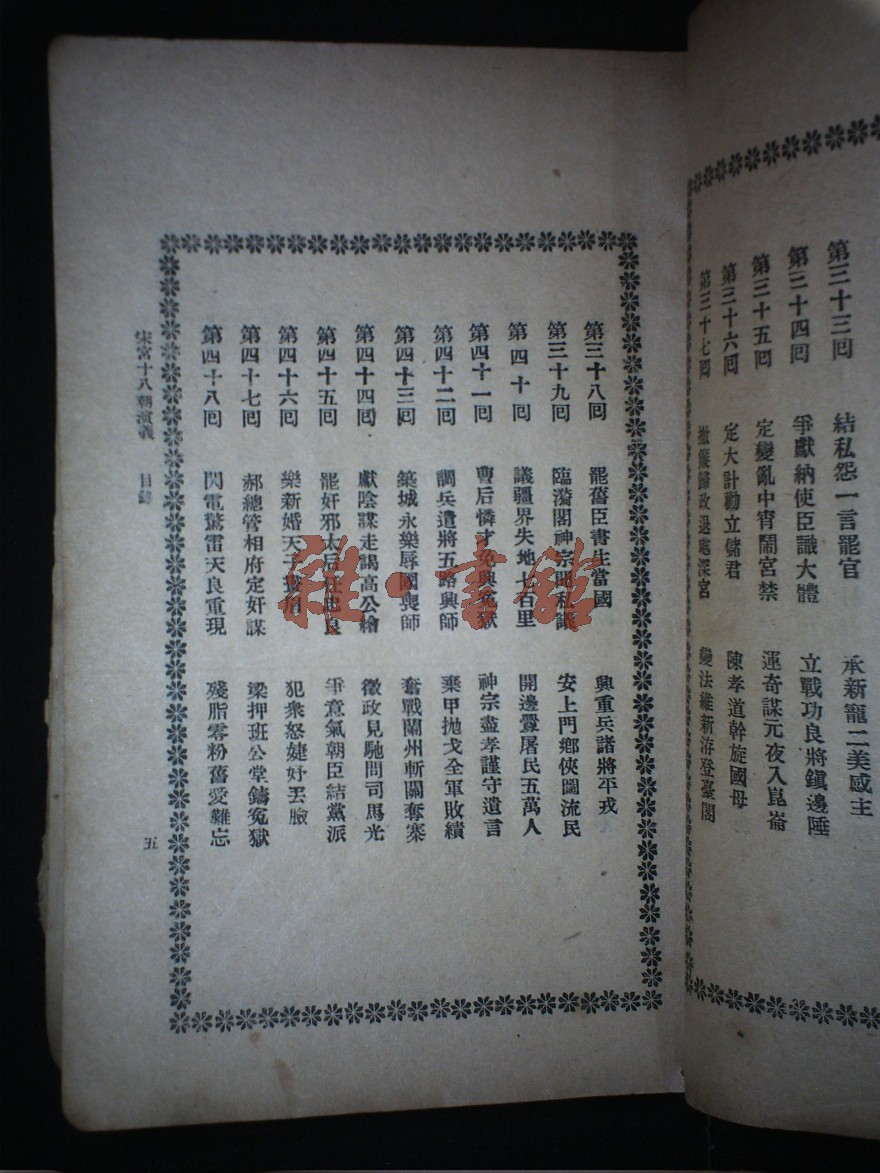 第三十三回 結私怨一言罷官 承新寵二美惑主
第三十四回 爭獻納使臣識大體 立戰功良將鎮邊陲
第三十五回 定變亂中宵鬧宮禁 運奇謀元夜入崑崙
第三十六回 定大計勸立儲君 陳孝道幹旋國母
第三十七回 撤簾歸政退處深宮 變法維新洊登臺閣
第三十八回 罷舊臣書生當國 興重兵諸將平戎
第三十九回 臨漪閣神宗 議 安上門鄉俠圖流民
第四十回 議疆界失地七百里 開邊釁屠民五萬人
第四十一回 曹后憐才免興冤獄 神宗盡孝謹守遺言
第四十二回 調兵遣將五路興師 棄甲拋戈全軍敗績
第四十三回 築城永樂辱國喪師 奮戰蘭州斬關奪寨
第四十四回 獻陰謀走謁高公繪 徵政見馳問司馬光
第四十五回 罷奸邪太后任忠良 爭意氣朝臣結黨派
第四十六回 樂新婚天子畫眉 犯衆怒婕妤丟臉
第四十七回 郝總管相府定奸謀 梁押班公堂鑄冤獄
第四十八回 閃電驚雷天良重現 殘脂零粉舊愛難忘
宋宮十八朝演義 目錄 五
雜·書館